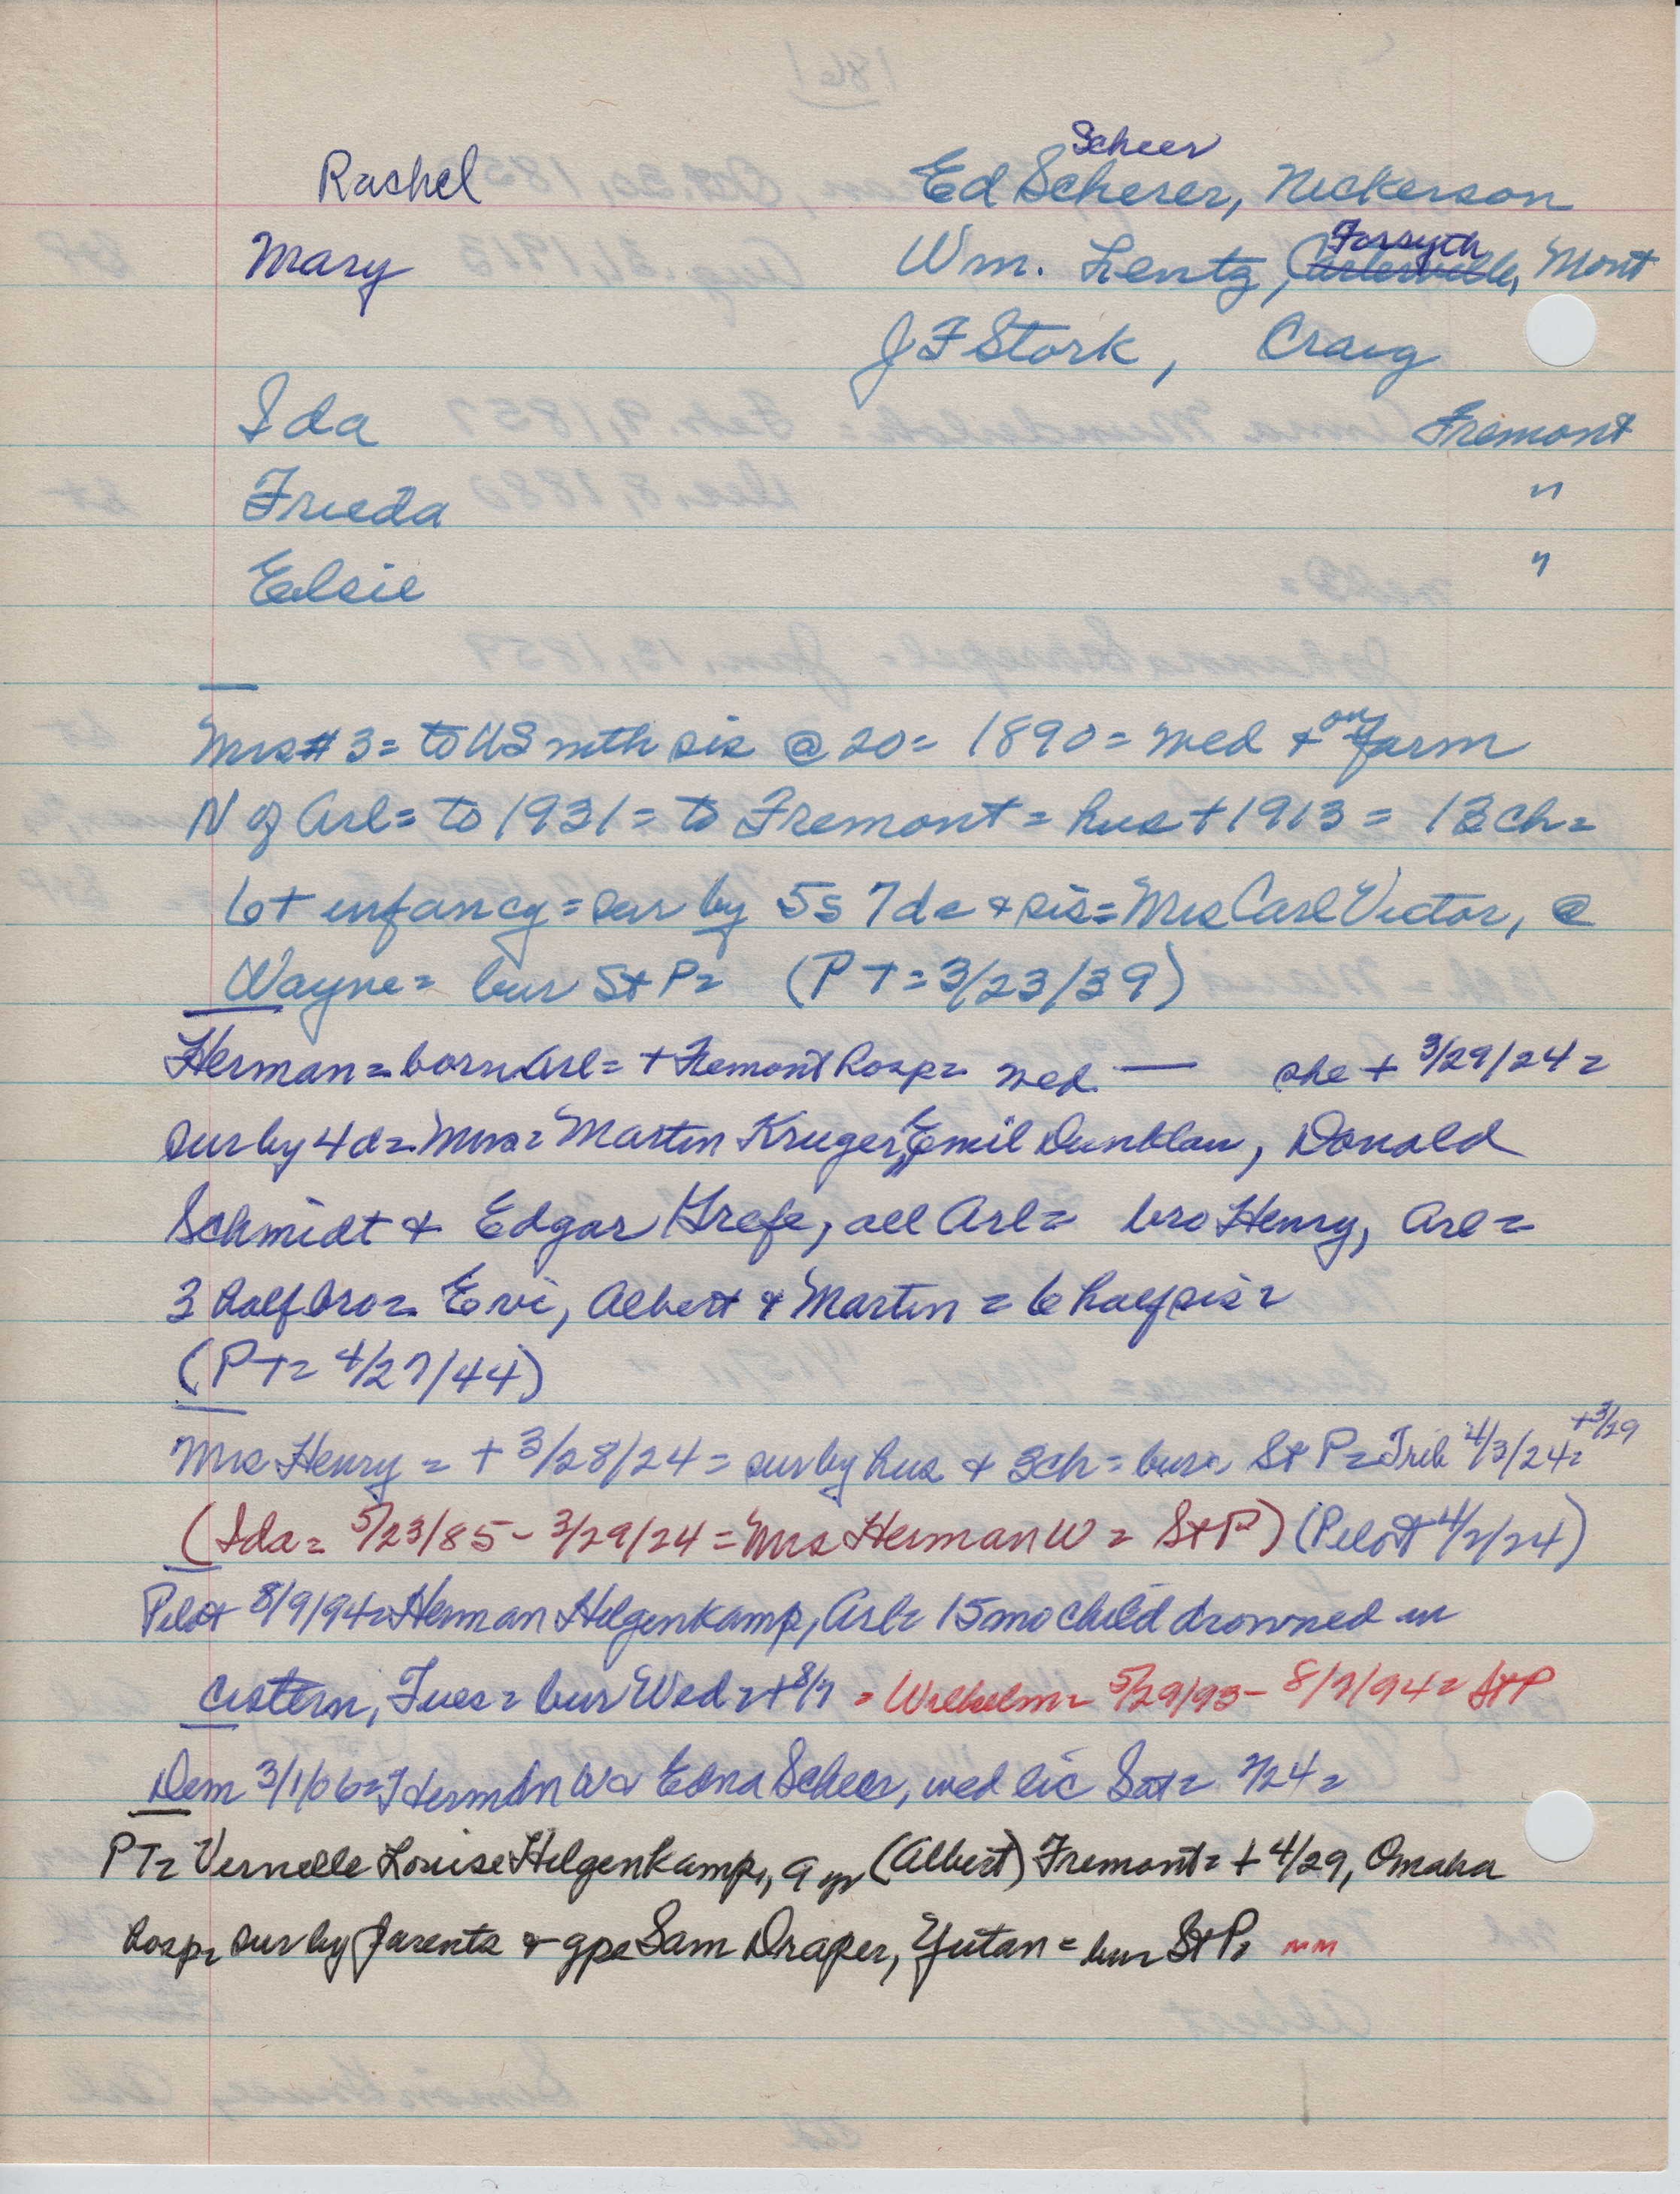 Scheer
Rachel Ed Scherer, Nickerson
Forsyth
Mary Wm. Lentz, Mont
J F Stork, Craig
Ida Fremont
Frieda "
Elsie "
Mrs #3 = to US with sis @ 20 = 1890 = wed + on farm
N of Arl = to 1931 = to Fremont = hus + 1913 = 13 ch =
6 + infancy = sur by 5s 7ds + sis = Mrs Carl Victor, @
Wayne = bur St P = (PT = 3/23/39)
Herman = born Arl = + Fremont hosp = wed — she + 3/29/24 =
sur by 4d = Mrs = Martin Kruger, Emil Dunklau, Donald
Schmidt + Edgar Grefe, all Arl = bro Henry, Arl =
3 half bro = Ervi, Albert + Martin = 6 half sis =
(PT = 4/27/44)
Mrs Henry = + 3/28/24 = sur by hus + 3ch = bur St P = Trib 4/3/24 = +3/29
(Ida = 5/23/85 - 3/29/24 = Mrs Herman W = St P) (Pilot 4/2/24)
Pilot 8/9/94 = Herman Hilgenkamp, Arl = 15 mo child drowned in
cistern, Tues = bur Wed = + 8/7 = Wilhelm = 5/29/93 - 8/7/94 = St P
Dem 3/1/06 = Herman W + Edna Scheer, wed lic Sat = 2/24 =
PT = Vernelle Louise Hilgenkamp, 9 yr (Albert) Fremont = + 4/29, Omaha
hosp = sur by parents + gps Sam Draper, Yutan = bur St P =